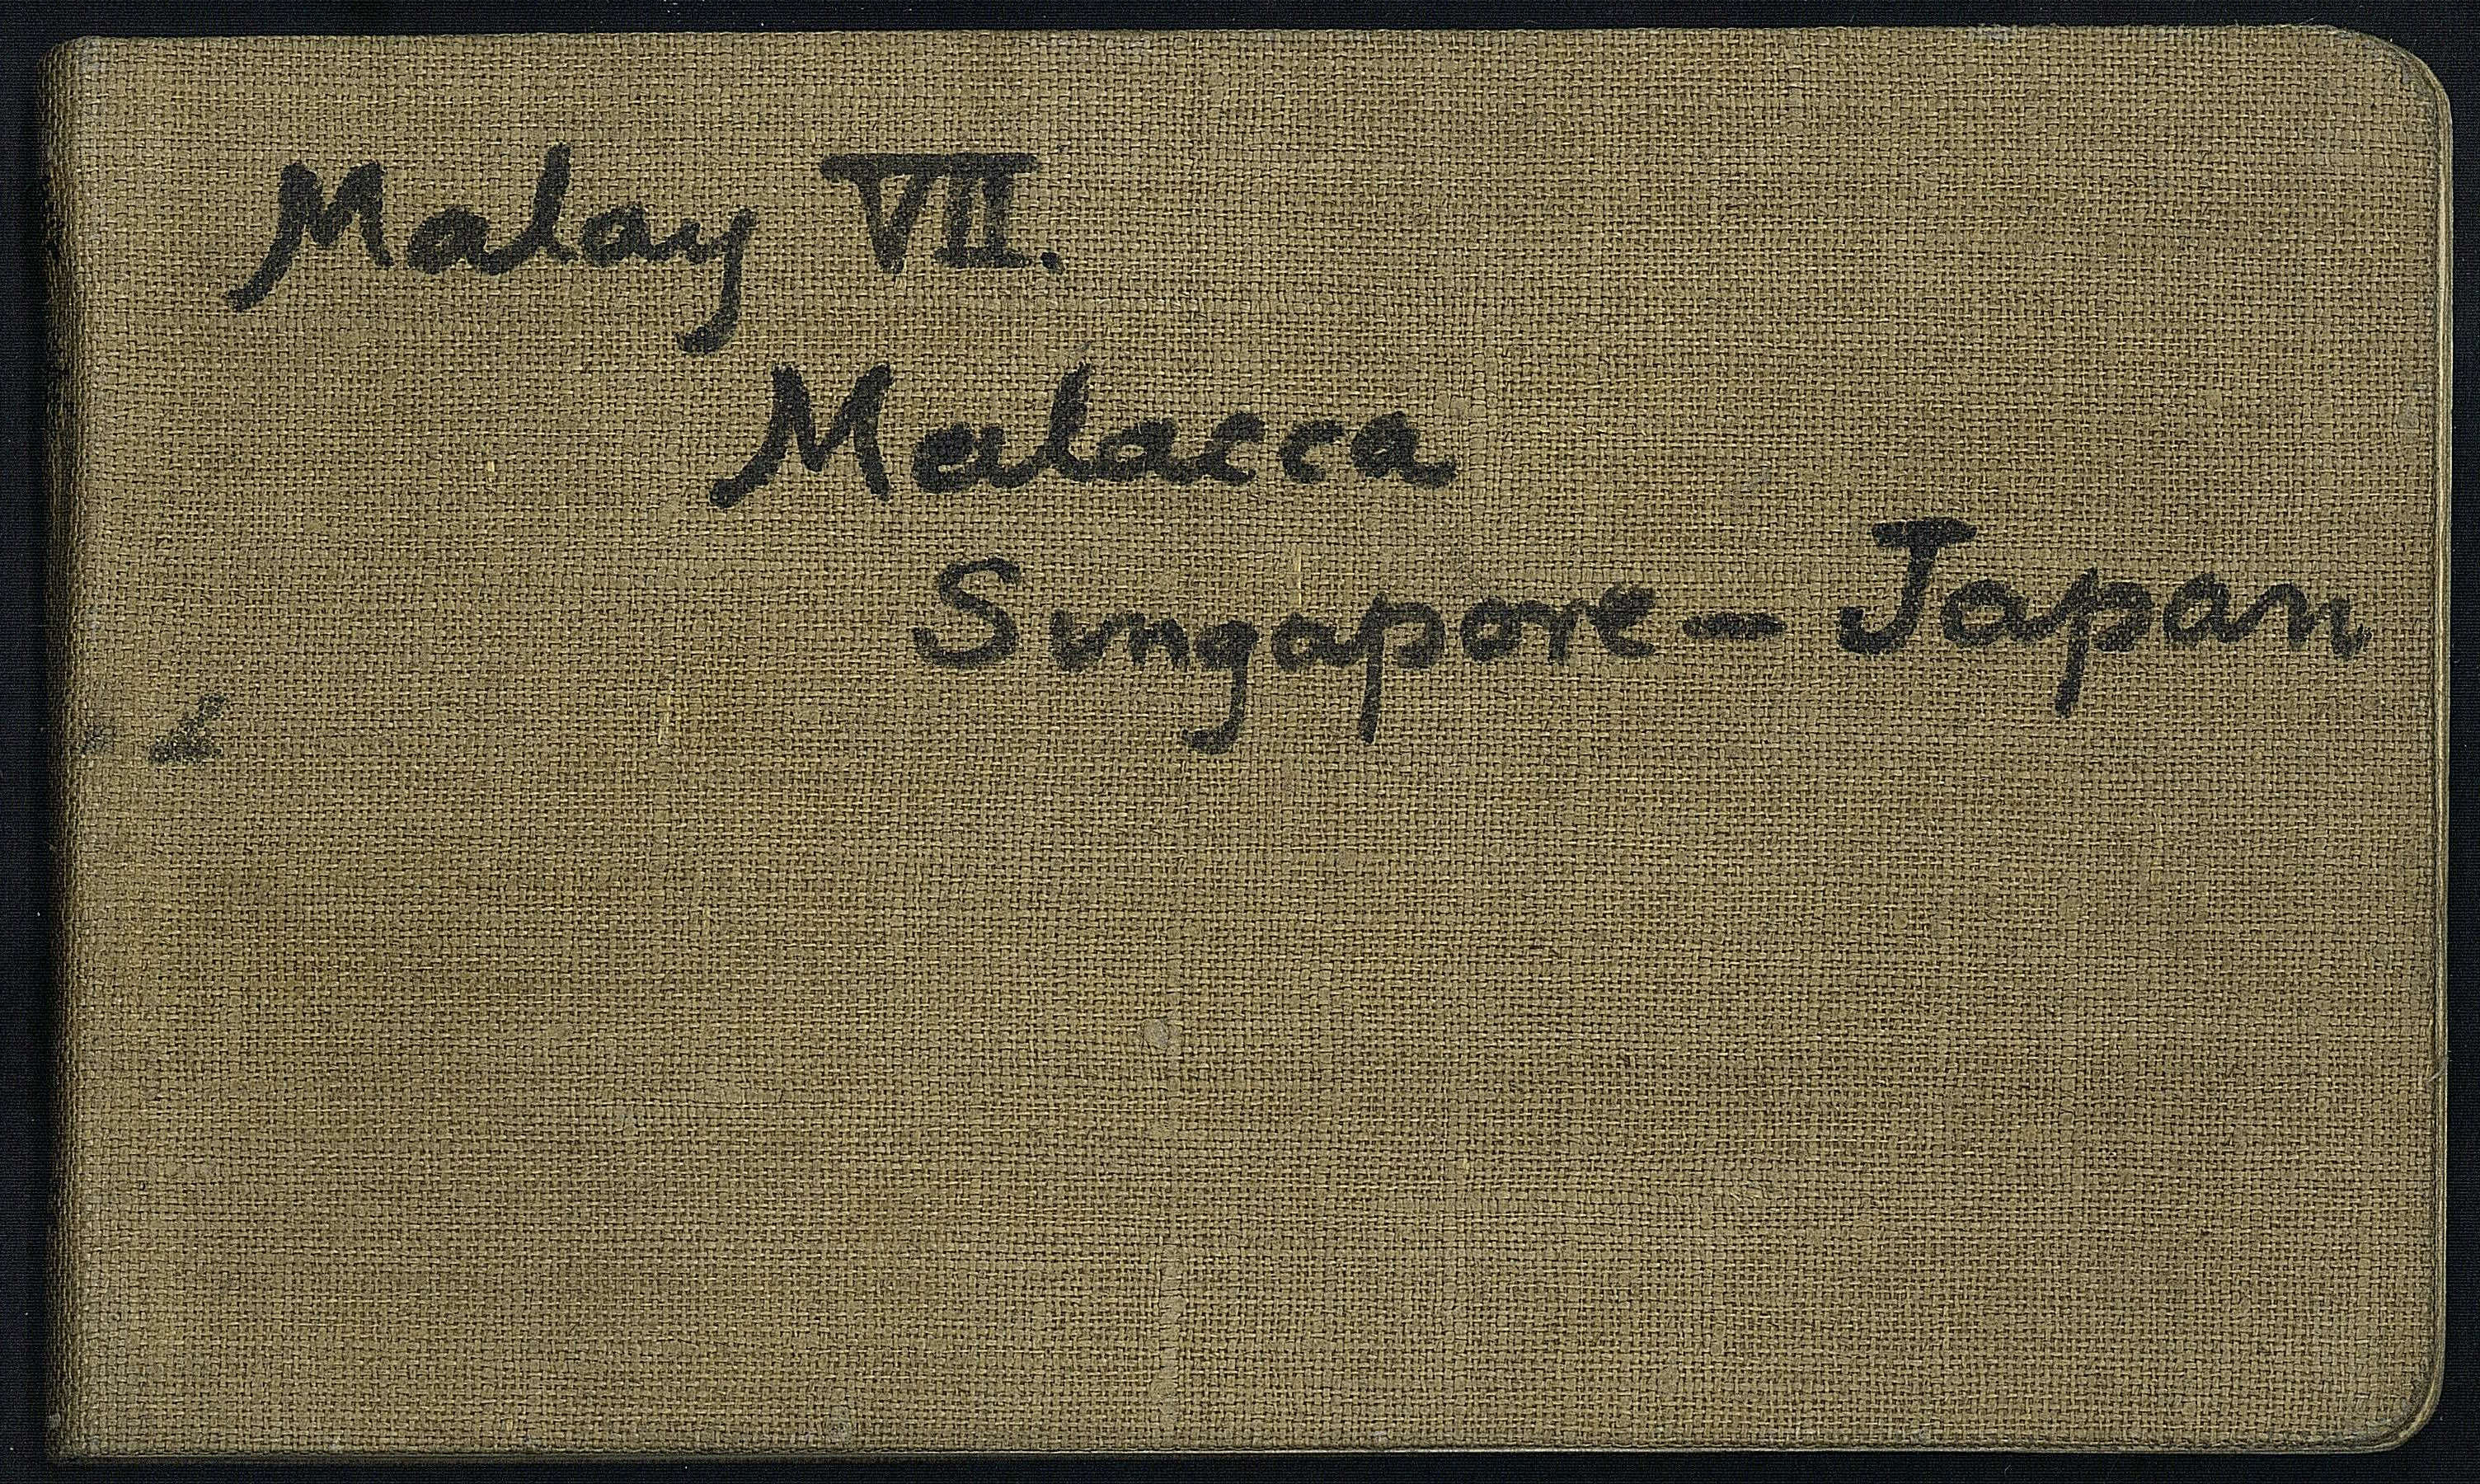 Malay VII.
Malacca
Singapore — Japan